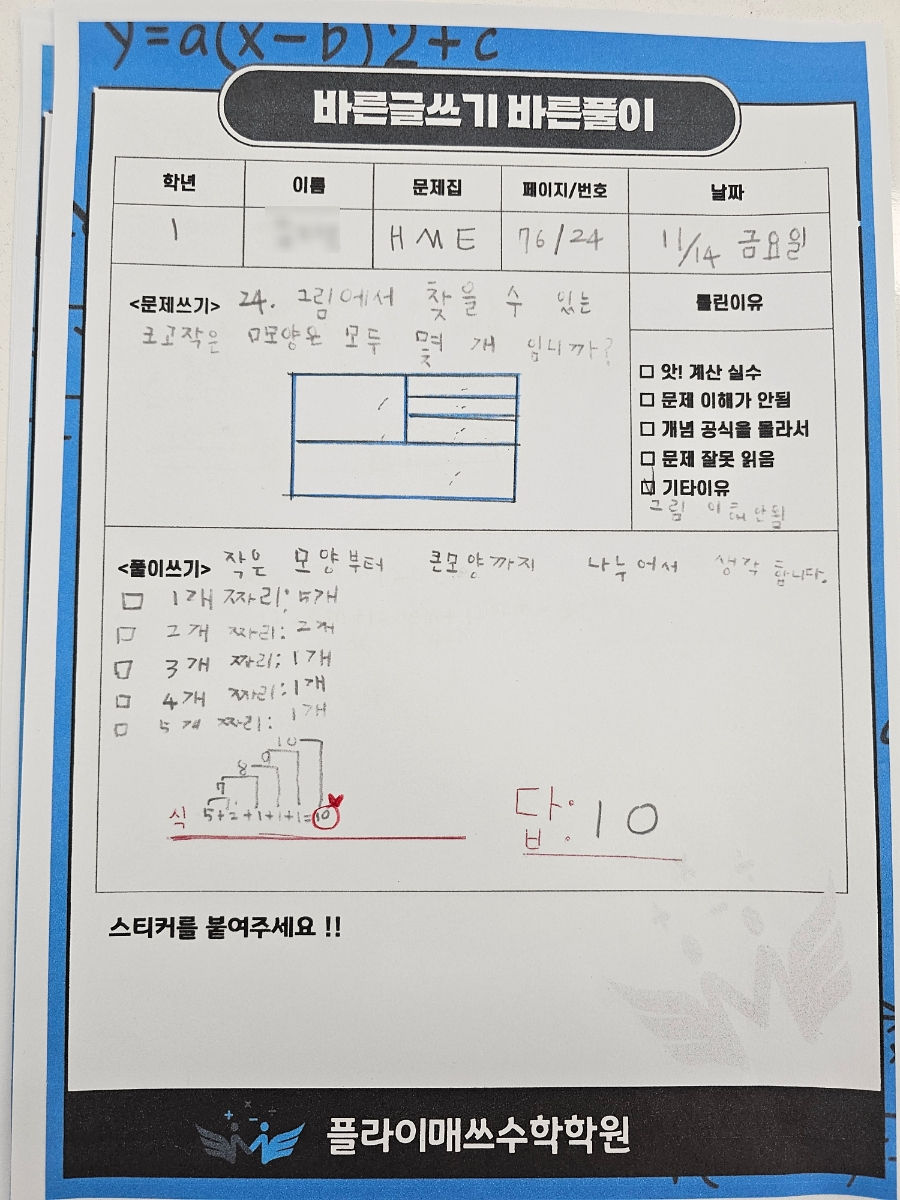 y=a(x-b)2+c
바른글쓰기 바른풀이
학년 이름 문제집 페이지/번호 날짜
1 HME 76/24 11/14 금요일
<문제쓰기> 24. 그림에서 찾을 수 있는
크고작은 ㅁ모양은 모두 몇 개 입니까?
틀린이유
앗! 계산 실수
문제 이해가 안됨
개념 공식을 몰라서
문제 잘못 읽음
기타이유
그림 이해안됨
<풀이쓰기> 작은 모양부터 큰모양까지 나누어서 생각합니다.
□ 1개 짜리: 5개
□ 2개 짜리: 2개
□ 3개 짜리: 1개
□ 4개 짜리: 1개
□ 5개 짜리: 1개
10
9
8
7
식 5+2+1+1+1=10
답: 10
스티커를 붙여주세요 !!
플라이매쓰수학학원